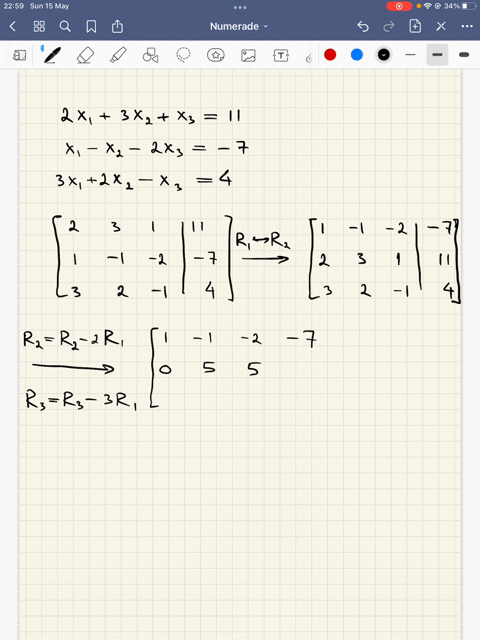 22:59 Sun 15 May 34%
Numerade
2x₁ + 3x₂ + x₃ = 11
x₁ - x₂ - 2x₃ = -7
3x₁ + 2x₂ - x₃ = 4
2 3 1 | 11
1 -1 -2 | -7
3 2 -1 | 4
R₁ ↔ R₂
1 -1 -2 | -7
2 3 1 | 11
3 2 -1 | 4
R₂ = R₂ - 2R₁
R₃ = R₃ - 3R₁
1 -1 -2 -7
0 5 5